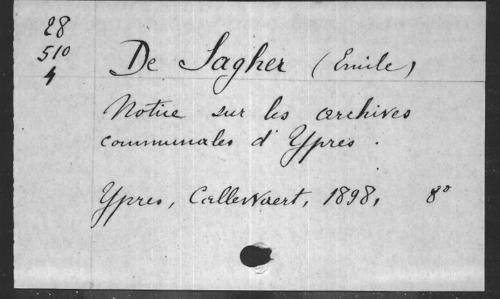 28
510
4
De Sagher (Emile)
Notice sur les archives
communales d'Ypres.
Ypres, Callewaert, 1898, 8°